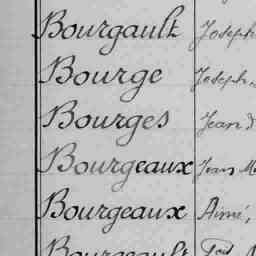 Bourgault Joseph
Bourge Joseph
Bourges Jean
Bourgeaux Jean
Bourgeaux Aimé,
Bourgeault